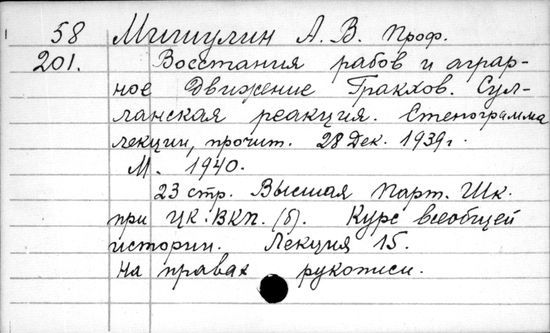 58 Мишулин А. В. Проф.
201. Восстания рабов и аграр-
ное движение Гракхов. Сул-
ланская реакция. Стенограмма
лекции, прочит. 28 Дек. 1939 г.
М. 1940.
23 стр. Высшая Парт. Шк.
при ЦК. ВКП. (б). Курс всеобщей
истории. Лекция 15.
На правах рукописи.